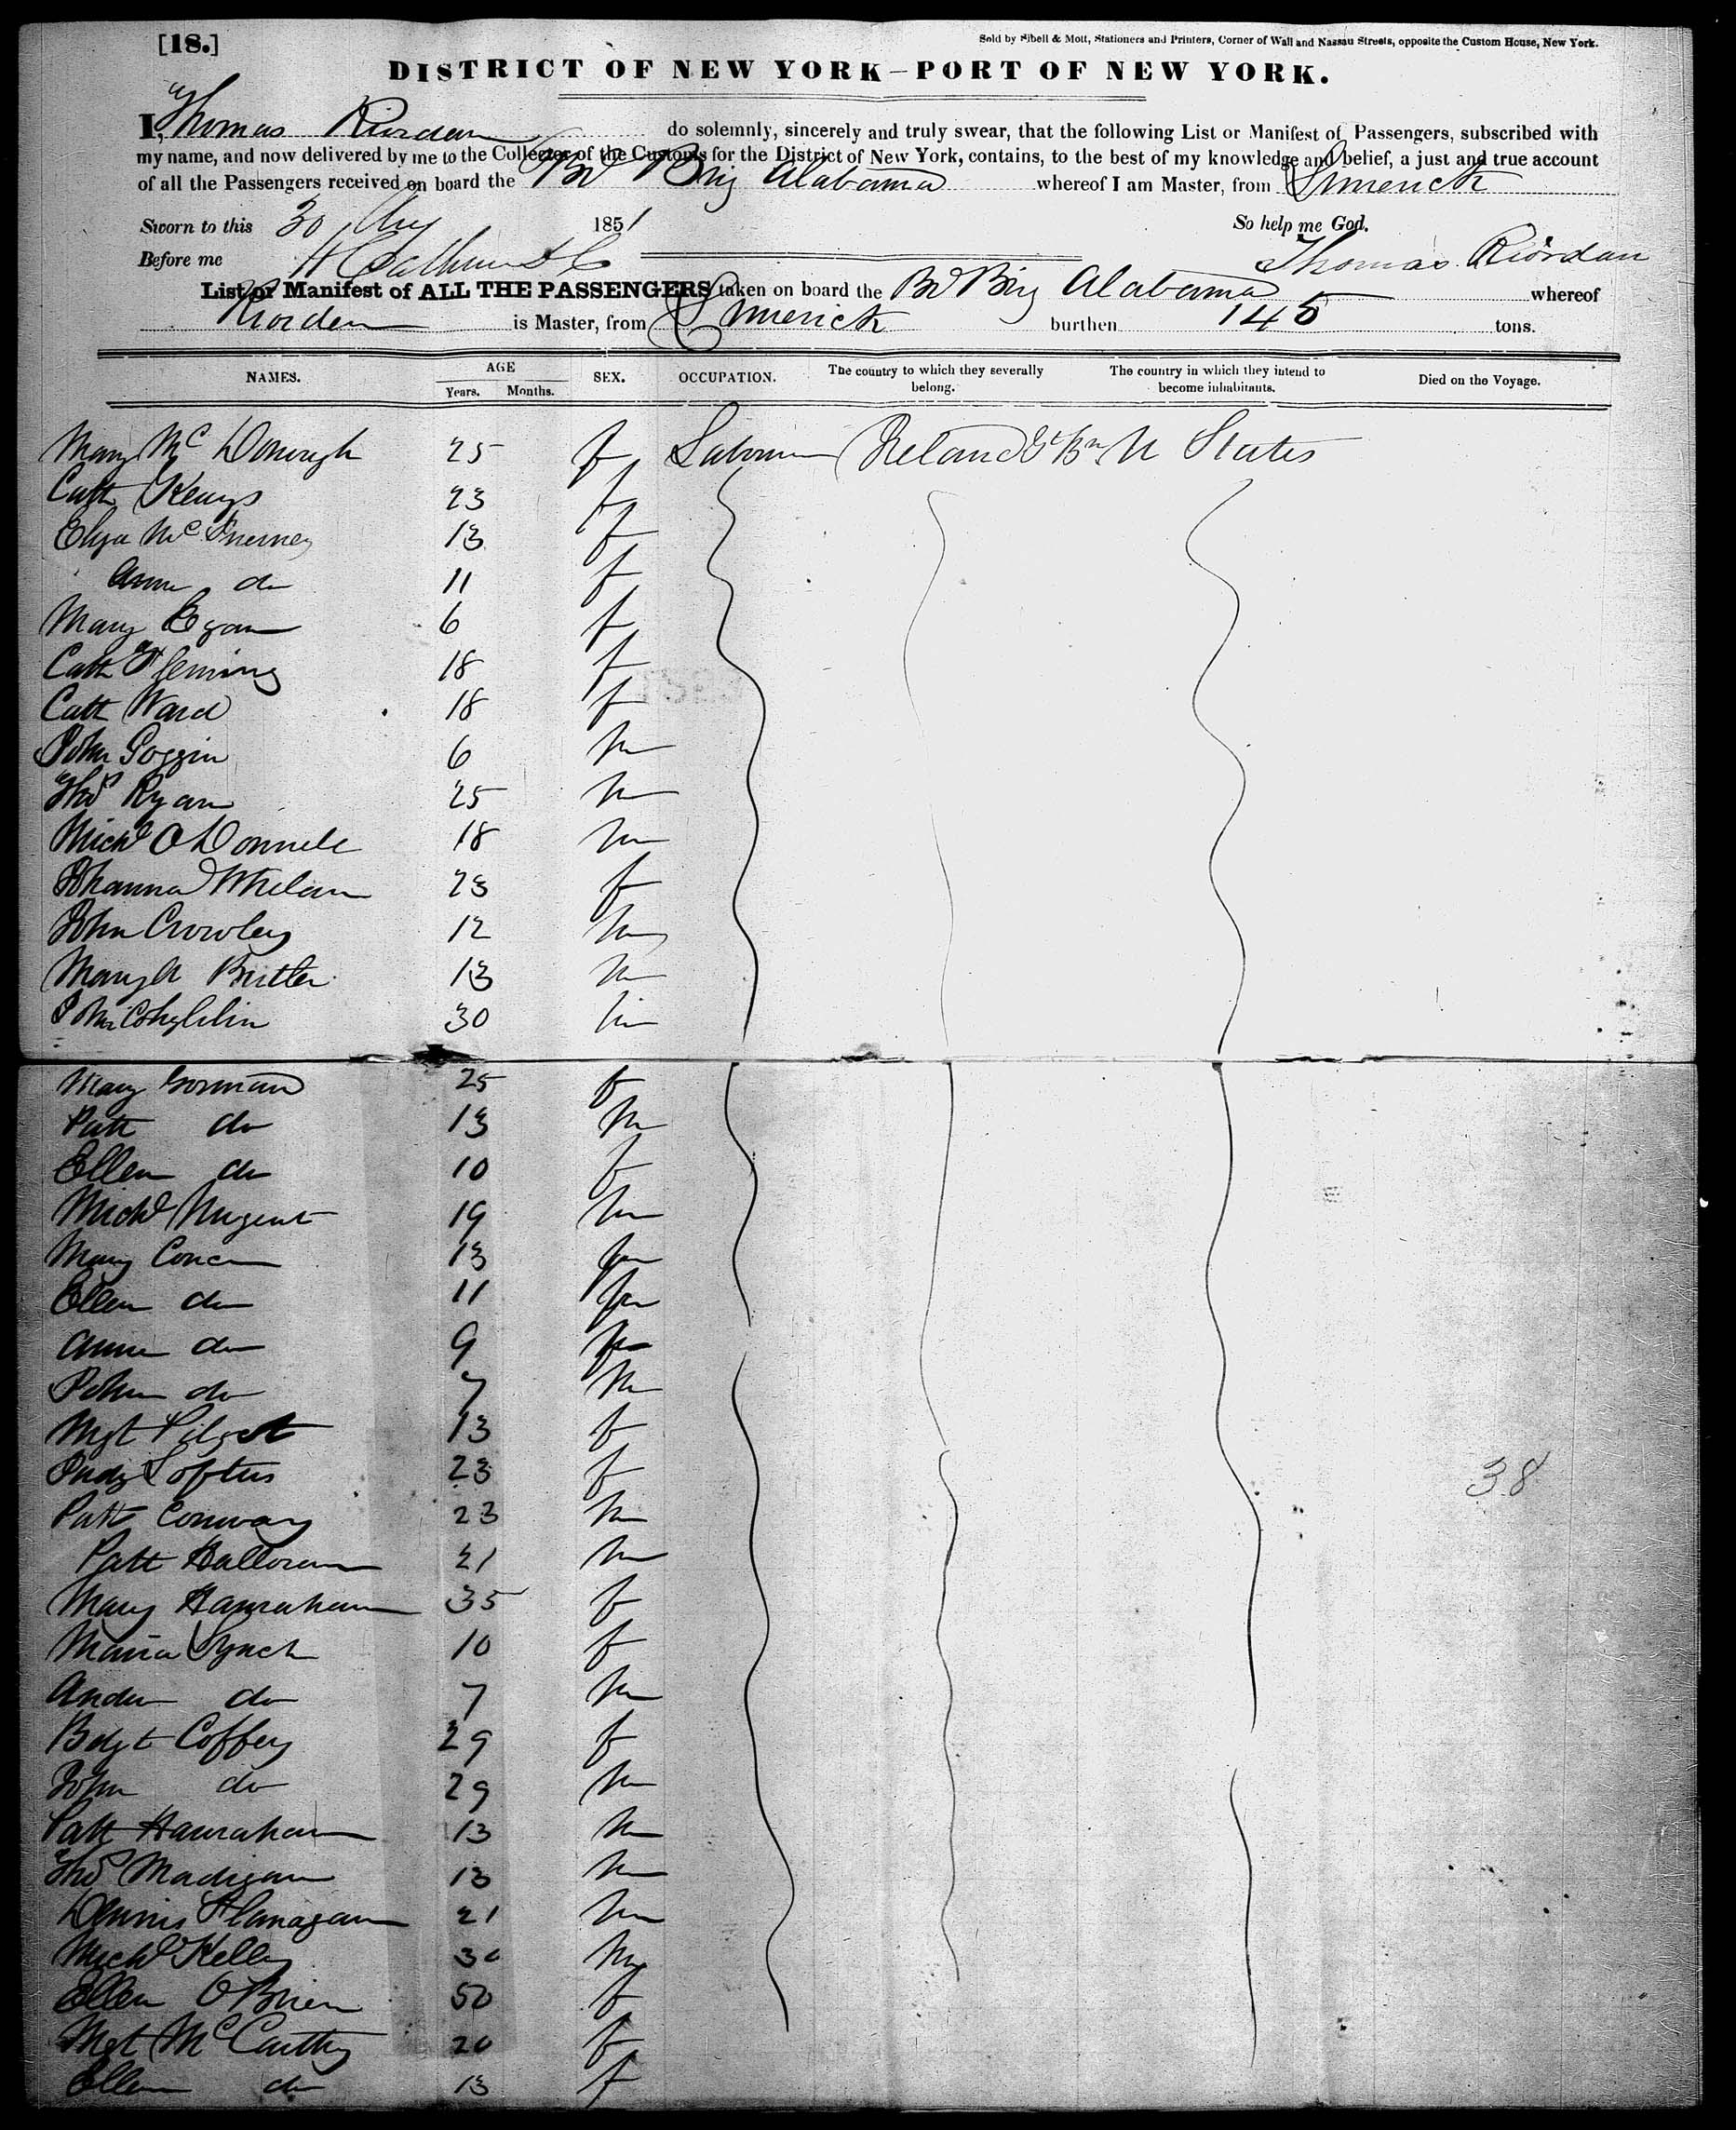 [18.]
Sold by Sibell & Mott, Stationers and Printers, Corner of Wall and Nassau Streets, opposite the Custom House, New York.
DISTRICT OF NEW YORK—PORT OF NEW YORK.
I, Thomas Riordan do solemnly, sincerely and truly swear, that the following List or Manifest of Passengers, subscribed with
my name, and now delivered by me to the Collector of the Customs for the District of New York, contains, to the best of my knowledge and belief, a just and true account
of all the Passengers received on board the Br Brig Alabama whereof I am Master, from Limerick
Sworn to this 30 1851 So help me God.
Before me Thomas Riordan
List or Manifest of ALL THE PASSENGERS taken on board the Br Brig Alabama whereof
Riorden is Master, from Limerick burthen 145 tons.
NAMES. AGE SEX. OCCUPATION. The country to which they severally belong. The country in which they intend to become inhabitants. Died on the Voyage.
Years. Months.
Mary McDonough 25 f Ireland Gt Bn U States
Cath Keays 23 f
Eliza McInerney 13 f
Anne do 11 f
Mary Egan 6 f
Cath Fleming 18 f
Cath Ward 18 f
John Goggin 6 m
Thos Ryan 25 m
Michl ODonnell 18 m
Johanna Whelan 23 f
John Crowley 12 m
Mary A Butler 13 m
30 m
Mary Gorman 25 f
Patt do 13 m
Ellen do 10 f
Michl Nugent 19 m
Mary 13 f
Ellen do 11 f
Anne do 9 f
John do 7 m
Mgt 13 f
Judy Loftus 23 f
Patt Conway 23 m
Patt Halloran 21 m
Mary Hanrahan 35 f
Maria Lynch 10 f
Andw do 7 m
Bdgt Coffey 29 f
John do 29 m
Patt Hanrahan 13 m
Thos Madigan 13 m
Dennis Flanagan 21 m
Michl Kelly 30 m
Ellen OBrien 50 f
Mgt McCarthy 20 f
Ellen do 13 f
38